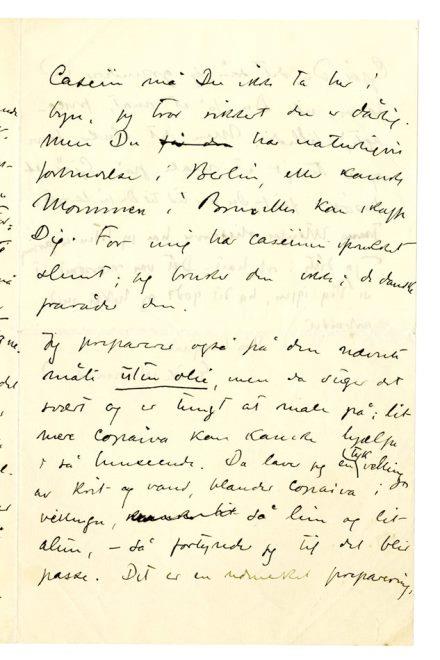 Casein må Du ikke ta her i
byen, jeg tror sikkert den er dårlig.
Men Du har naturligvis
i Berlin, eller kanske
i kan skaffe
Dig. For mig har caseinen
slemt; jeg bruker den ikke i de danske
farver den.
Jeg preparerer også på den nævnte
måte uten olie, men da suger det
svært og er tungt at male på; lit
mere copaiva kan kanske hjælpe
i så henseende. Da laver jeg en tyk velling
av krit og vand, blander copaiva i
vellingen, så lim og lit
alun, – så fortynder jeg til det blir
passe. Det er en udmerket preparering,